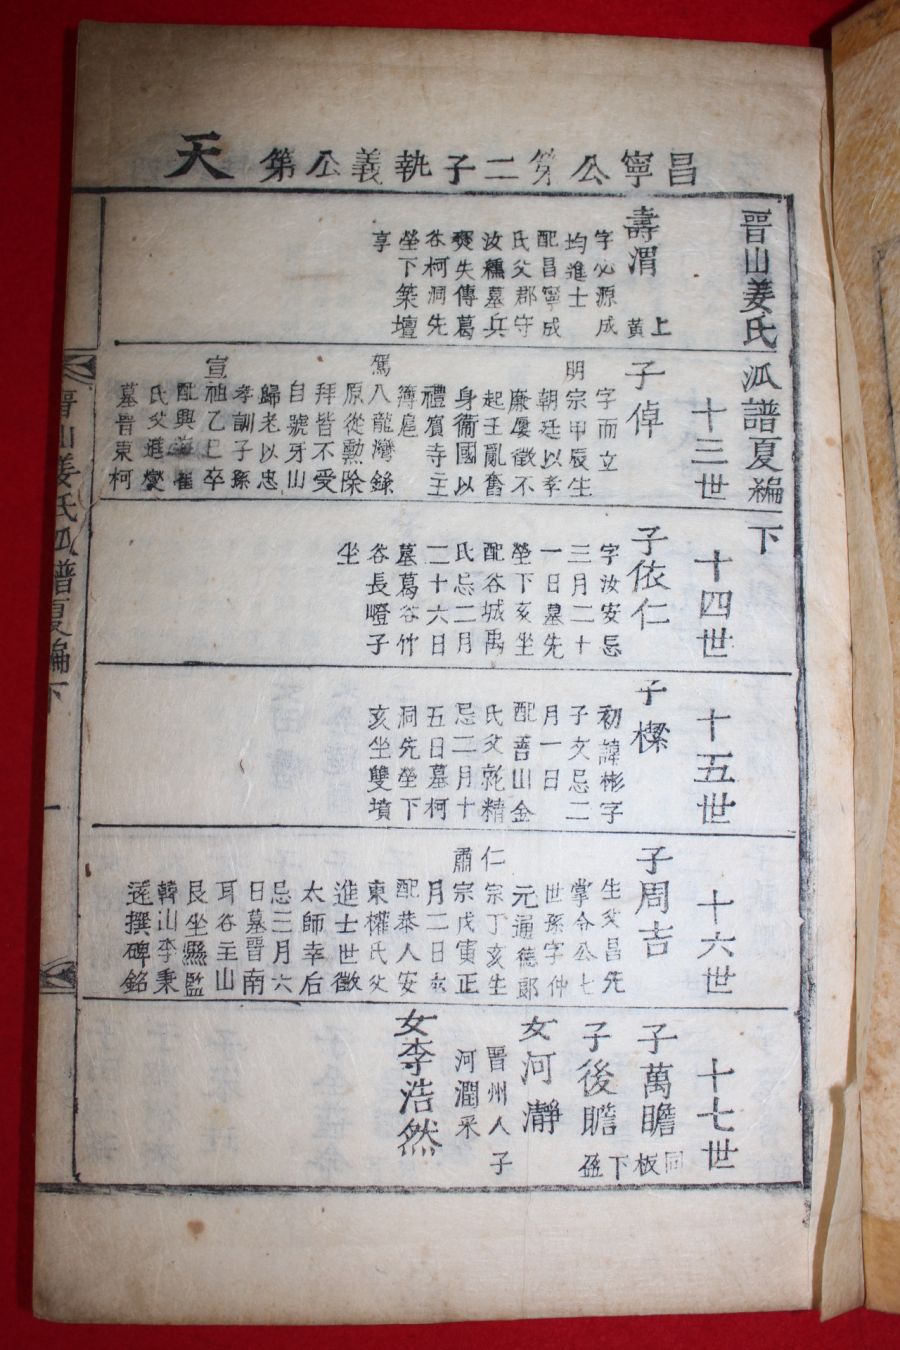 昌寧公第二子執義公第 天
晋山姜氏派譜夏編下
壽渭 上
黃
字必源成
均進士
配昌寧成
氏父郡守
汝櫄墓兵
燹失傳葛
谷柯洞先
塋下築壇
享
十三世
子倬
字而立
明宗甲辰生
朝廷以孝
廉屢徵不
起壬亂奮
身衞國以
禮賓寺主
簿扈
駕八龍灣錄
原從勲除
拜皆不受
自號牙山
歸老以忠
孝訓子孫
宣祖乙巳卒
氏父進燮
墓晋東柯
十四世
子依仁
字汝安忌
三月二十
一日墓先
塋下亥坐
配谷城禹
氏忌二月
二十六日
墓葛谷竹
谷長嶝子
坐
十五世
子櫟
初諱彬字
子文忌二
月一日
配善山金
氏父乾精
忌二月十
五日墓柯
洞先塋下
亥坐雙墳
十六世
子周吉
生父昌先
掌令公七
世孫字仲
元通德郞
仁宗丁亥生
肅宗戊寅正
月二日卒
配恭人安
東權氏父
進士世徵
太師幸后
忌三月六
日墓晋南
耳谷主山
艮坐縣監
韓山李秉
蓮撰碑銘
十七世
子萬瞻
同板
子後瞻
下
女河瀞
晋州人子
河潤采
女李浩然
晋山姜氏派譜夏編下
一